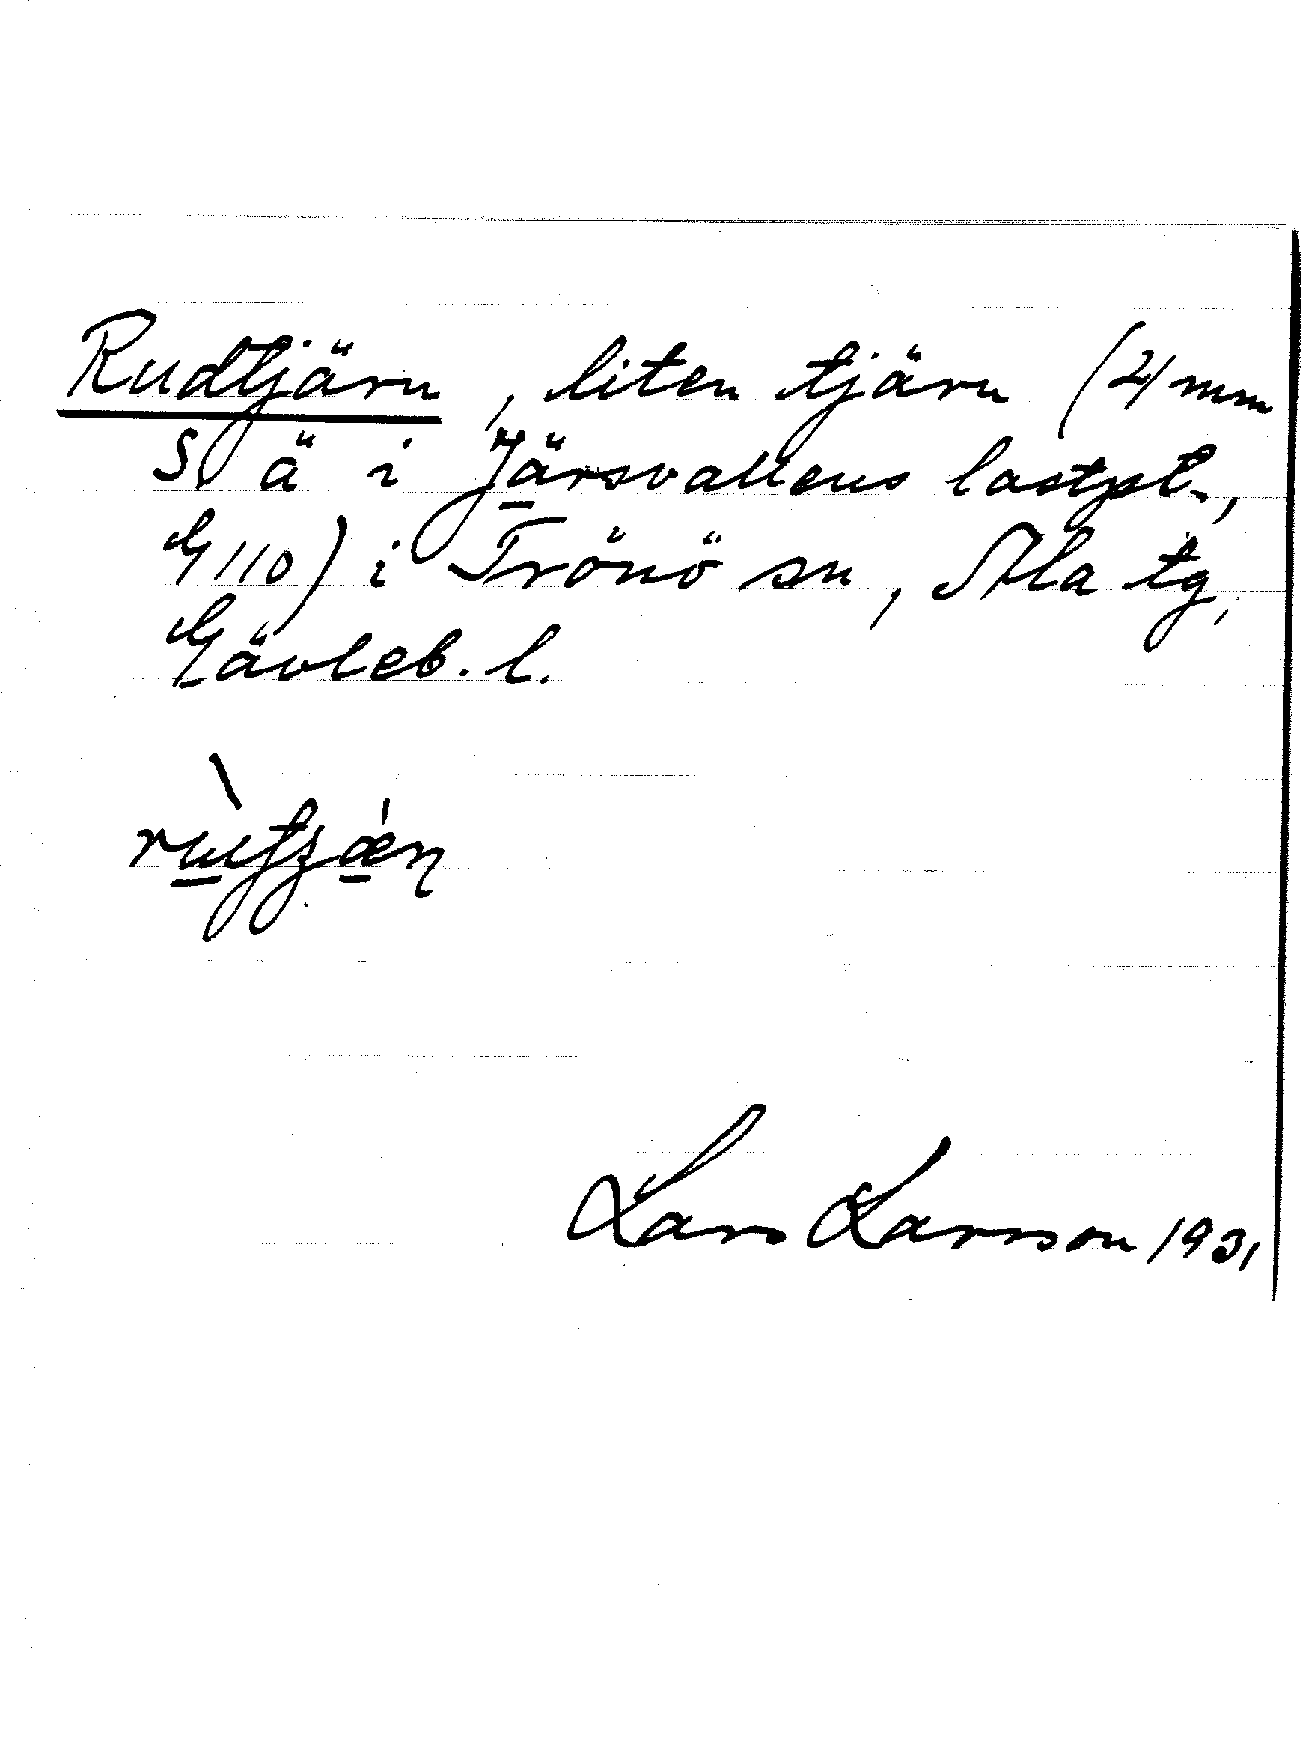 Rudtjärn, liten tjärn (21 mm
S ä i Järsvallens lastpl.,
G 110) i Trönö sn, Ala tg,
Gävleb. l.
Lars Larsson 1931